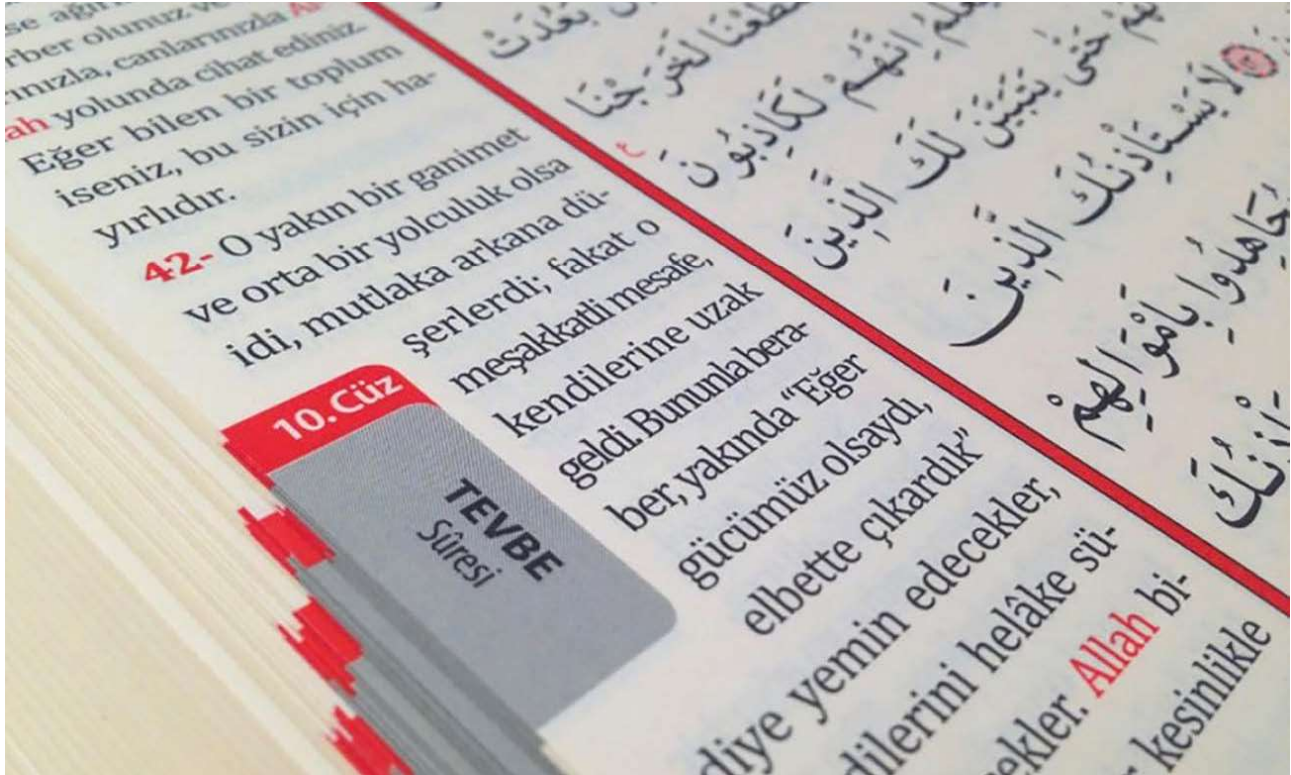 se ağır
rber olunuz ve
rınızla, canlarınızla
ah yolunda cihat ediniz.
Eğer bilen bir toplum
iseniz, bu sizin için ha-
yırlıdır.
42- O yakın bir ganimet
ve orta bir yolculuk olsa
idi, mutlaka arkana dü-
şerlerdi; fakat o
meşakkatli mesafe,
kendilerine uzak
geldi. Bununla bera-
ber, yakında “Eğer
gücümüz olsaydı,
elbette çıkardık”
diye yemin edecekler,
dilerini helâke sü-
ekler. Allah bi-
kesinlikle
10.Cüz
TEVBE
Sûresi
بَعُدَتْ
لَخَرَجْنَا
اِنَّهُمْ لَكَاذِبُونَ
حَتّٰى يَتَبَيَّنَ لَكَ الَّذ۪ينَ
لَا يَسْتَأْذِنُكَ الَّذ۪ينَ
يُجَاهِدُوا بِاَمْوَالِهِمْ